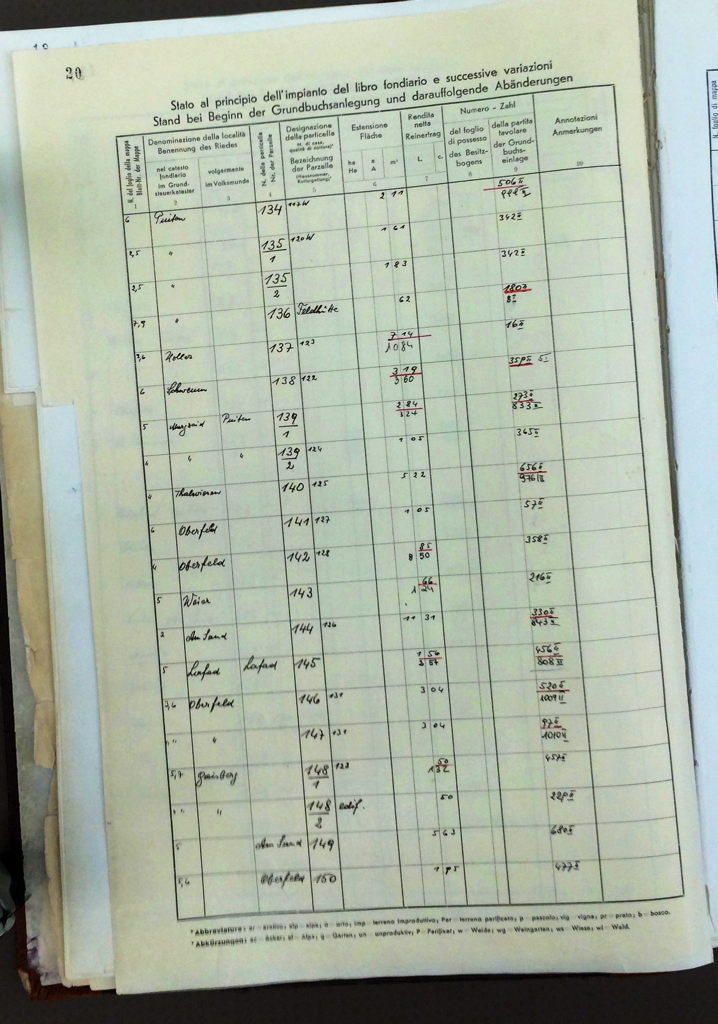 20
Stato al principio dell'impianto del libro fondiario e successive variazioni
Stand bei Beginn der Grundbuchsanlegung und darauffolgende Abänderungen
N. del foglio della mappa Blatt-Nr. der Mappe
Denominazione della località
Benennung des Riedes
nel catasto fondiario
im Grund-steuerkataster
volgarmente
im Volksmunde
N. della particella
Nr. der Parzelle
Designazione della particella
Bezeichnung der Parzelle
Estensione
Fläche
ha a m²
Ha A
Rendita netta
Reinertrag
L. c.
Numero - Zahl
del foglio di possesso
des Besitz-bogens
della partita tavolare
der Grund-buchs-einlage
Annotazioni
Anmerkungen
1 2 3 4 5 6 7 8 9 10
6 134 117W 2 11 506II
2,5 " 135/1 120W 1 61 342II
2,5 " 135/2 1 83 342II
7,9 " 136 Feldhütte 62 180II 8I
3,6 137 123 7 14 10 84 16II
6 138 122 3 19 3 60 5I
5 139/1 2 84 3 24 273II 833II
4 " " 139/2 124 1 05 365II
4 140 125 5 22 656II 976III
6 Oberfeld 141 127 1 05 57II
4 Oberfeld 142 128 85 8 50 358II
5 Weier 143 66 216II
2 Am Sand 144 126 11 31 330II 843II
5 145 1 56 3 57 456II 808II
3,6 Oberfeld 146 131 3 04 520II 1009II
" " " 147 131 3 04 97II 1010II
5,7 Gaisberg 148/1 123 50 1 32 457II
" " " 148/2 edif. 50
5 Am Sand 149 5 63 680II
5,6 Oberfeld 150 1 95 477II
* Abbreviature: ar - arativo; alp - alpe; o - orto; imp - terreno improduttivo; Per - terreno parificato; p - pascolo; vig - vigna; pr - prato; b - bosco.
* Abkürzungen: ac - Acker; al - Alpe; g - Garten; un - unproduktiv; P - Parifikat; w - Weide; wg - Weingarten; ws - Wiese; wl - Wald.